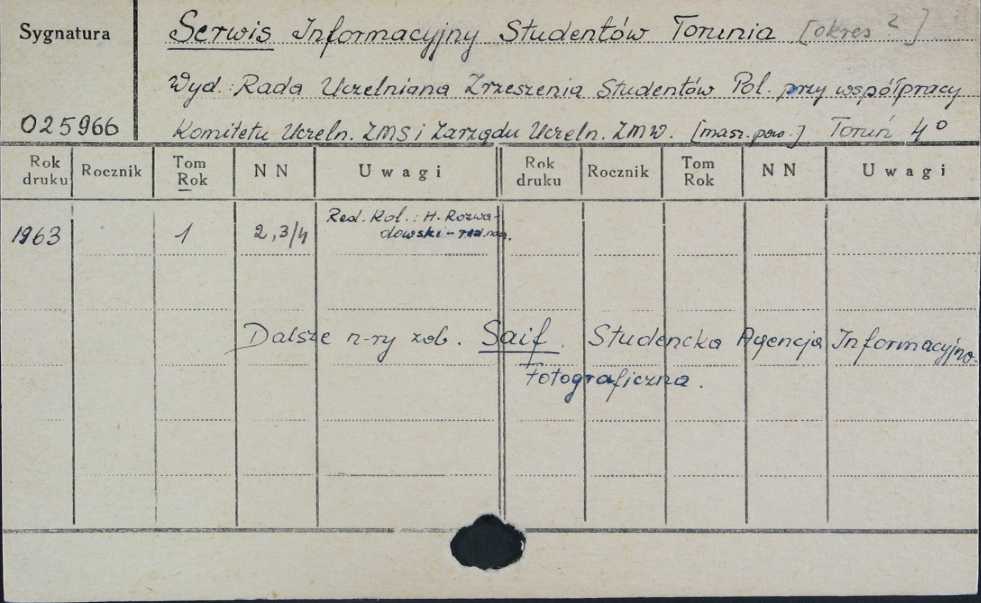 Sygnatura
Serwis Informacyjny Studentów Torunia [okres ? ]
Wyd. Rada Uczelniana Zrzeszenia Studentów Pol. przy współpracy
025966
Komitetu Uczeln. ZMS i Zarządu Uczeln. ZMW. [masz. pow.] Toruń 4°
Rok druku Rocznik Tom Rok NN Uwagi Rok druku Rocznik Tom Rok NN Uwagi
1963 1 2,3/4 Red. Kol.: H. Rozwa-
dowski - red. nacz.
Dalsze n-ry zob. Saif. Studencka Agencja Informacyjno-
Fotograficzna.